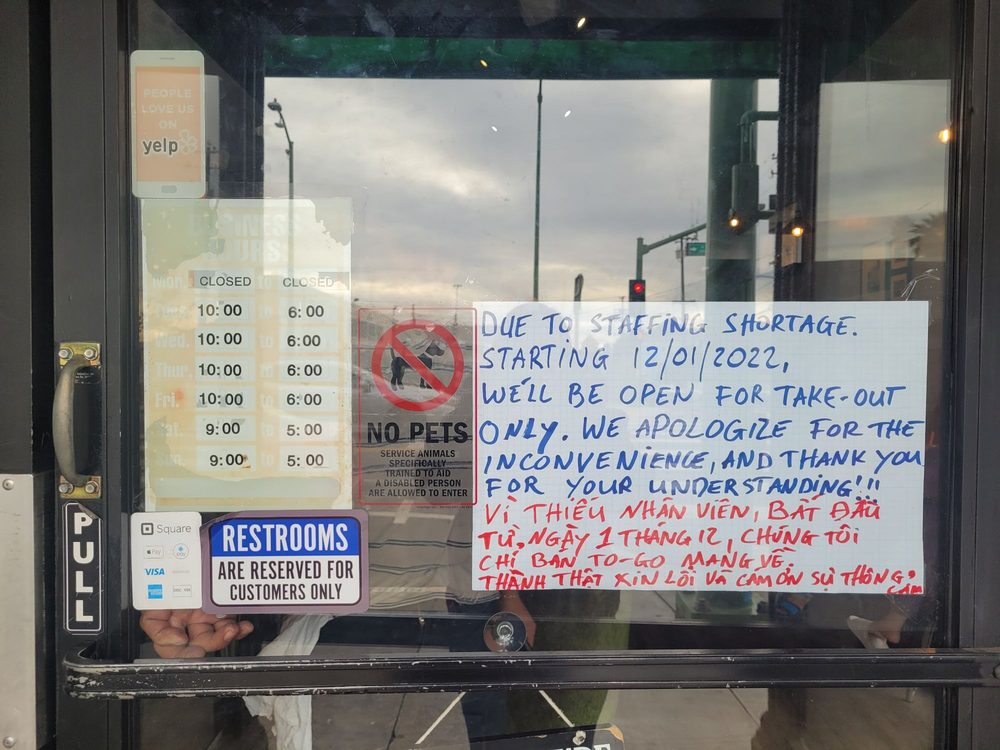 PEOPLE
LOVE US
ON
yelp
BUSINESS
HOURS
Mon. CLOSED to CLOSED
Tues. 10:00 to 6:00
Wed. 10:00 to 6:00
Thur. 10:00 to 6:00
Fri. 10:00 to 6:00
Sat. 9:00 to 5:00
Sun. 9:00 to 5:00
NO PETS
SERVICE ANIMALS
SPECIFICALLY
TRAINED TO AID
A DISABLED PERSON
ARE ALLOWED TO ENTER
DUE TO STAFFING SHORTAGE.
STARTING 12/01/2022,
WE'LL BE OPEN FOR TAKE-OUT
ONLY. WE APOLOGIZE FOR THE
INCONVENIENCE, AND THANK YOU
FOR YOUR UNDERSTANDING!!!
VÌ THIẾU NHÂN VIÊN, BẮT ĐẦU
TỪ NGÀY 1 THÁNG 12, CHÚNG TÔI
CHỈ BÁN TO-GO MANG VỀ.
THÀNH THẬT XIN LỖI VÀ CẢM ƠN SỰ THÔNG
CẢM
PULL
Square
Pay
VISA
RESTROOMS
ARE RESERVED FOR
CUSTOMERS ONLY